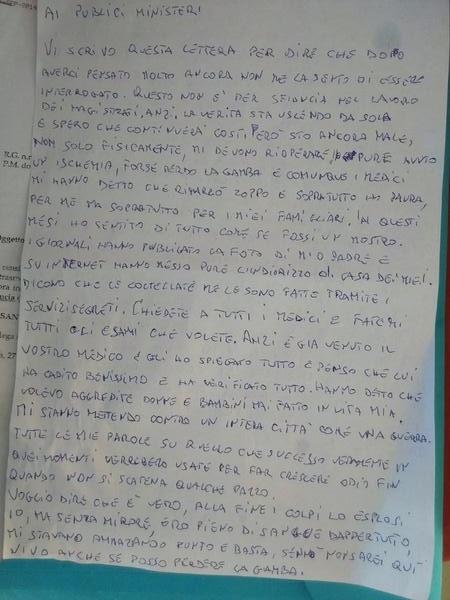 AI PUBLICI MINISTERI
VI SCRIVO QUESTA LETTERA PER DIRE CHE DOPO
AVERCI PENSATO MOLTO ANCORA NON ME LA SENTO DI ESSERE
INTERROGATO. QUESTO NON E' PER SFIDUCIA NEL LAVORO
DEI MAGISTRATI, ANZI, LA VERITA STA USCENDO DA SOLA
E SPERO CHE CONTINUERÀ COSÌ. PERÒ STO ANCORA MALE,
NON SOLO FISICAMENTE, MI DEVONO RIOPERARE, PURE AVUTO
UN ISCHEMIA, FORSE PERDO LA GAMBA E COMUNQUE I MEDICI
MI HANNO DETTO CHE RIMARRÒ ZOPPO E SOPRATUTTO HO PAURA,
PER ME MA SOPRATUTTO PER I MIEI FAMILIARI. IN QUESTI
MESI HO SENTITO DI TUTTO COME SE FOSSI UN MOSTRO.
I GIORNALI HANNO PUBLICATO LA FOTO DI MIO PADRE E
SU INTERNET HANNO MESSO PURE L'INDIRIZZO DI CASA DEI MIEI.
DICONO CHE LE COLTELLATE ME LE SONO FATTE TRAMITE I
SERVIZI SEGRETI. CHIEDETE A TUTTI I MEDICI E FATEMI
TUTTI GLI ESAMI CHE VOLETE. ANZI È GIA VENUTO IL
VOSTRO MEDICO E GLI HO SPIEGATO TUTTO E PENSO CHE LUI
HA CAPITO BENISSIMO E HA VERIFICATO TUTTO. HANNO DETTO CHE
VOLEVO AGGREDIRE DONNE E BAMBINI MAI FATTO IN VITA MIA.
MI STANNO METTENDO CONTRO UN INTERA CITTÀ COME UNA GUERRA.
TUTTE LE MIE PAROLE SU QUELLO CHE SUCCESSO VERAMENTE IN
QUEI MOMENTI VERREBERO USATE PER FAR CRESCERE ODIO FIN
QUANDO NON SI SCATENA QUALCHE PAZZO.
VOGLIO DIRE CHE È VERO, ALLA FINE I COLPI LI ESPLOSI
IO, MA SENZA MIRARE, ERO PIENO DI SANGUE DAPPERTUTTO,
MI STAVANO AMMAZANDO PUNTO E BASTA, SENNÒ NON SAREI QUÌ
VIVO ANCHE SE POSSO PERDERE LA GAMBA.
R.G. n.r
P.M. do
Oggetto